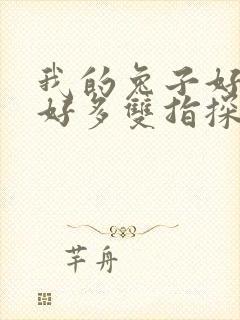 我的兔子好
好多雙指探
芊舟